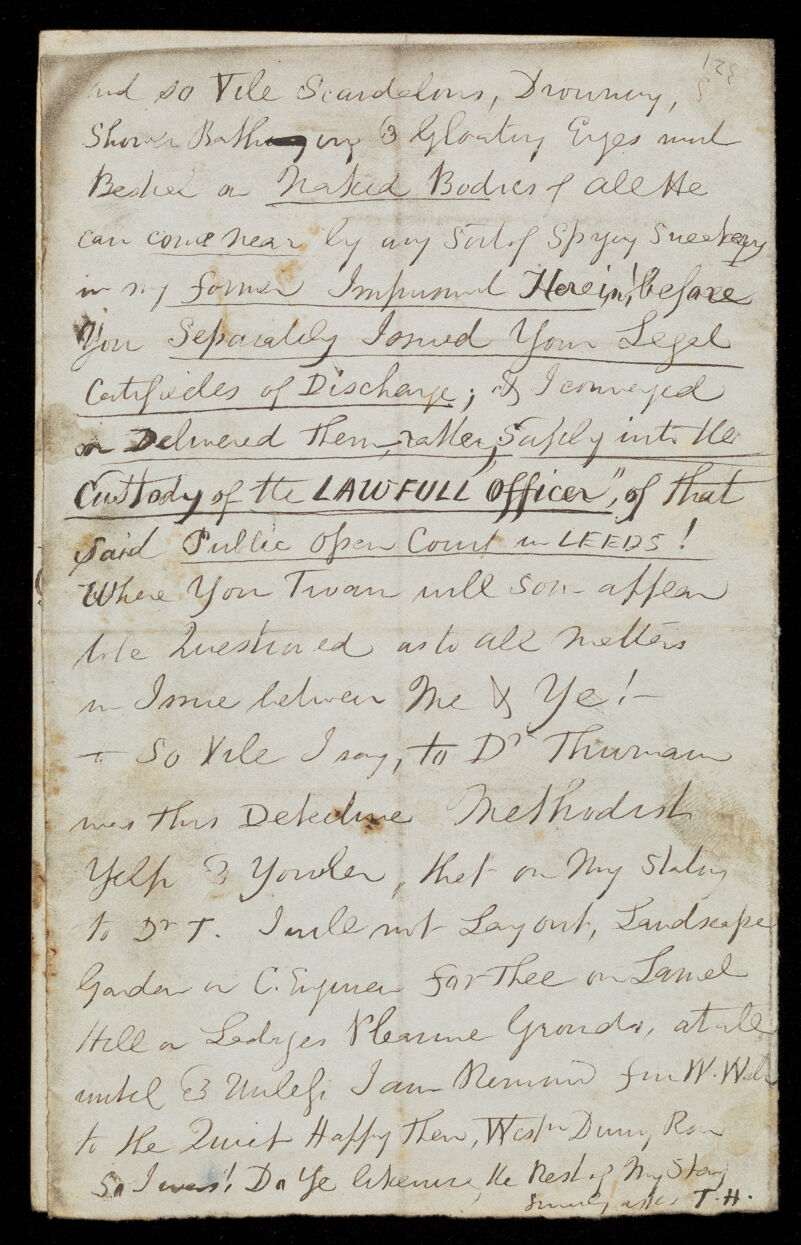 and so Vile Scandelous, Drowning,
Shower Bathing & Gloating Eyes must
Bestul on Naked Bodies of all He
can come near by any Sort of Spying Sneakery
in my former Imprismnt Herein! before
You Separately Issued Your Legal
Certificates of Discharge; & I conveyed
or Delivered them, rather, Safely into the
Custody of the LAWFULL officer", of that
said Public open Court in LEEDS!
Where You Twain will soon appear
to be Questioned as to all Matters
in Issue between Me & Ye! —
+ So Vile I say, to Dr Thurnam
was this Detective Methodist
Yelp & Yowler, that on My Stating
to Dr T. I will not Layout, Landscape
Garden or C. Engineer for Thee on Lamel
Hill or Ledges Pleasure Grounds, at all
until & Unless I am Remov'd fm W. Wab
to the Quiet Happy then, Westn Dining Room
So I was! Do Ye likewise, the Rest of My Stay
T. H.